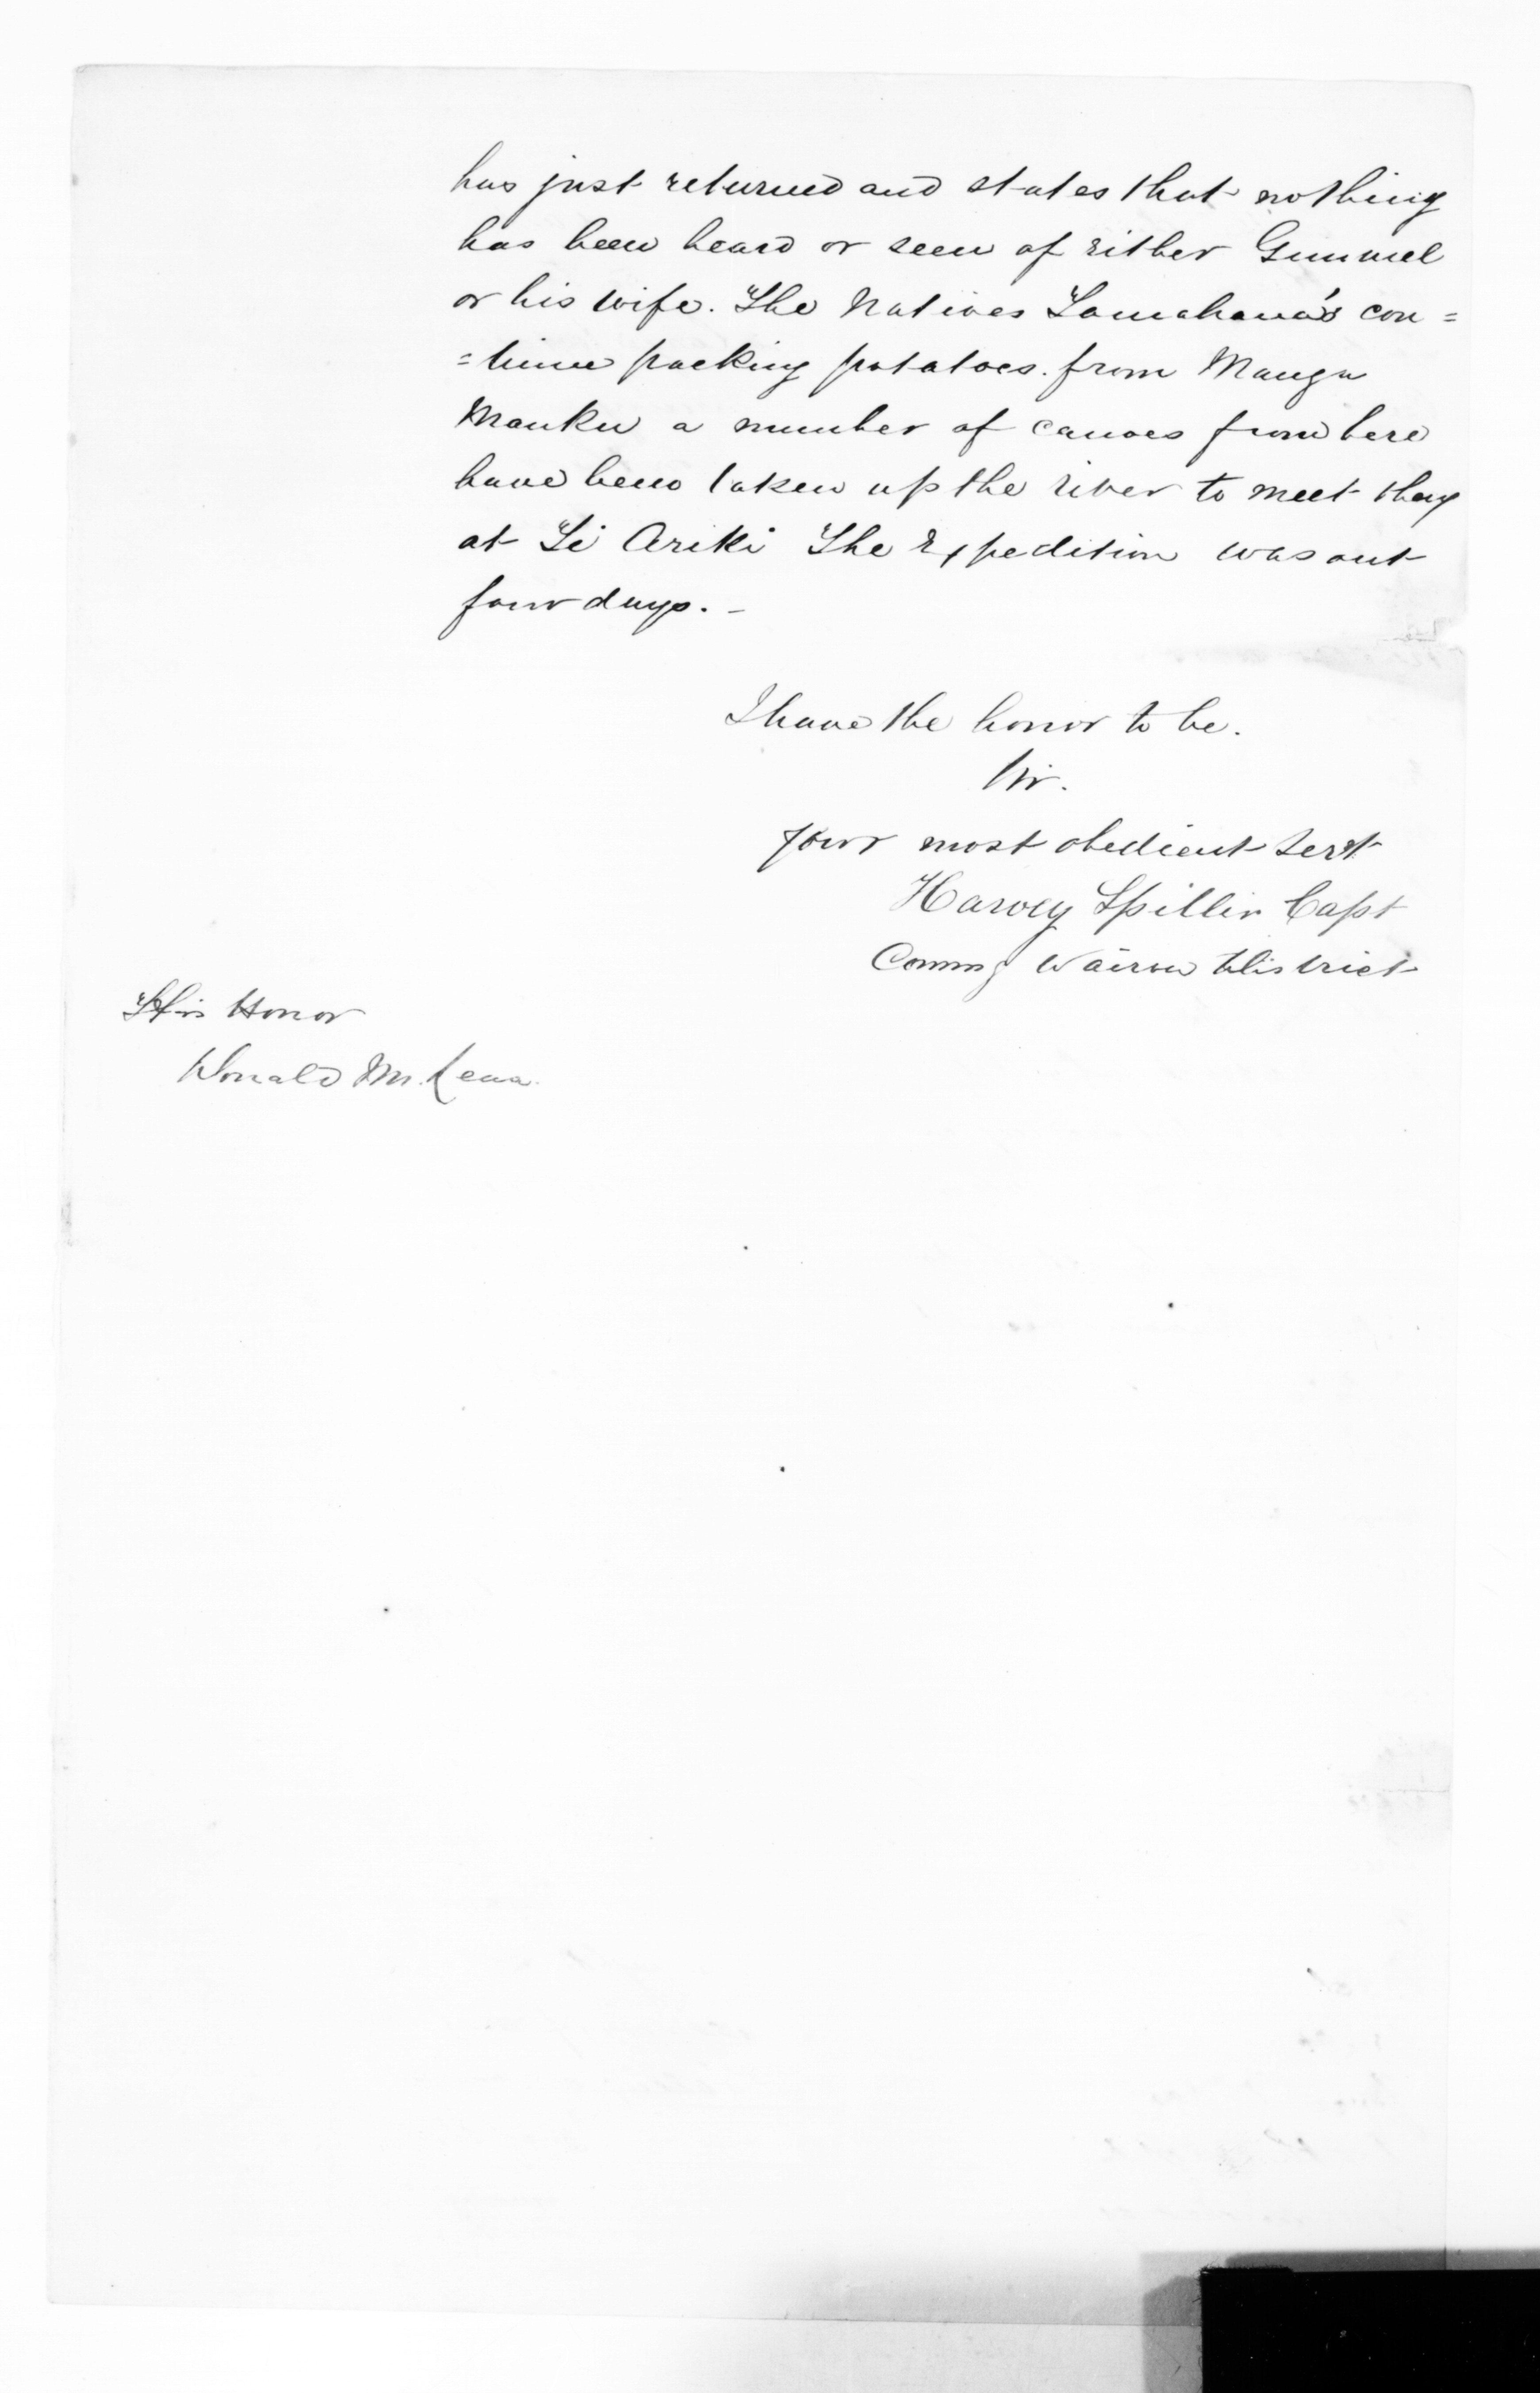 has just returned and states that nothing
has been heard or seen of either Gummel
or his wife. The Natives Tamahana's con=
=tinue packing potatoes. from Manga
Manku a number of canoes from here
have been taken up the river to meet they
at Te Ariki The Expedition was out
four days. -
I have the honor to be.
Sir.
Your most obedient Servt
Harvey Spiller Capt
Commg Wairoa District
His Honor
Donald McLean